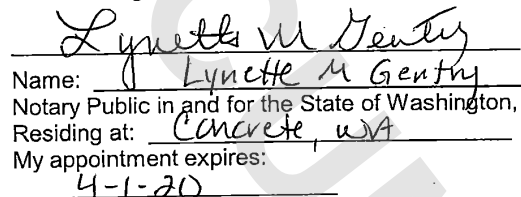 Lynette M Gentry
Name: Lynette M Gentry
Notary Public in and for the State of Washington,
Residing at: Concrete, WA
My appointment expires:
4-1-20